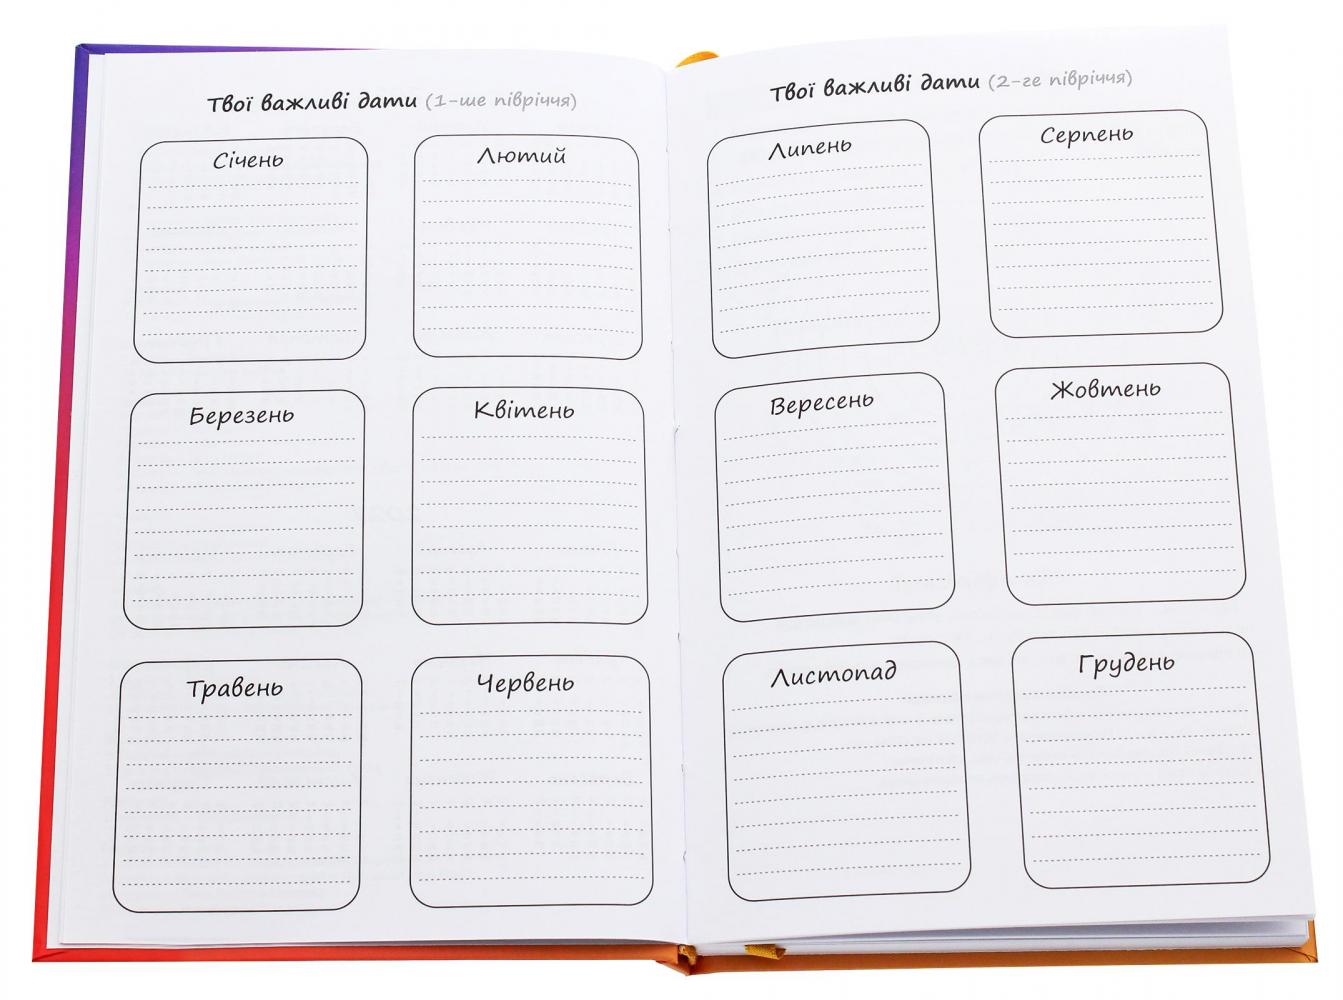 Твої важливі дати (1-ше півріччя)
Січень
Лютий
Березень
Квітень
Травень
Червень
Твої важливі дати (2-ге півріччя)
Липень
Серпень
Вересень
Жовтень
Листопад
Грудень